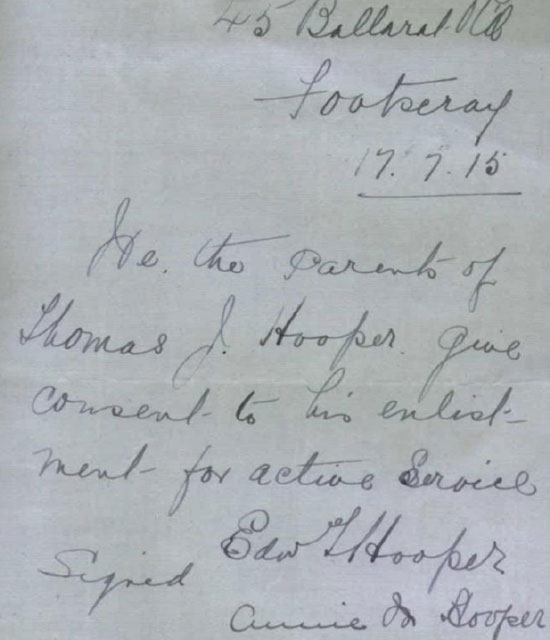 45 Ballarat Rd
Footscray
17.7.15
We. the Parents of
Thomas J. Hooper. give
consent to his enlist-
ment for active Service
Signed Edw T Hooper
Annie M Hooper